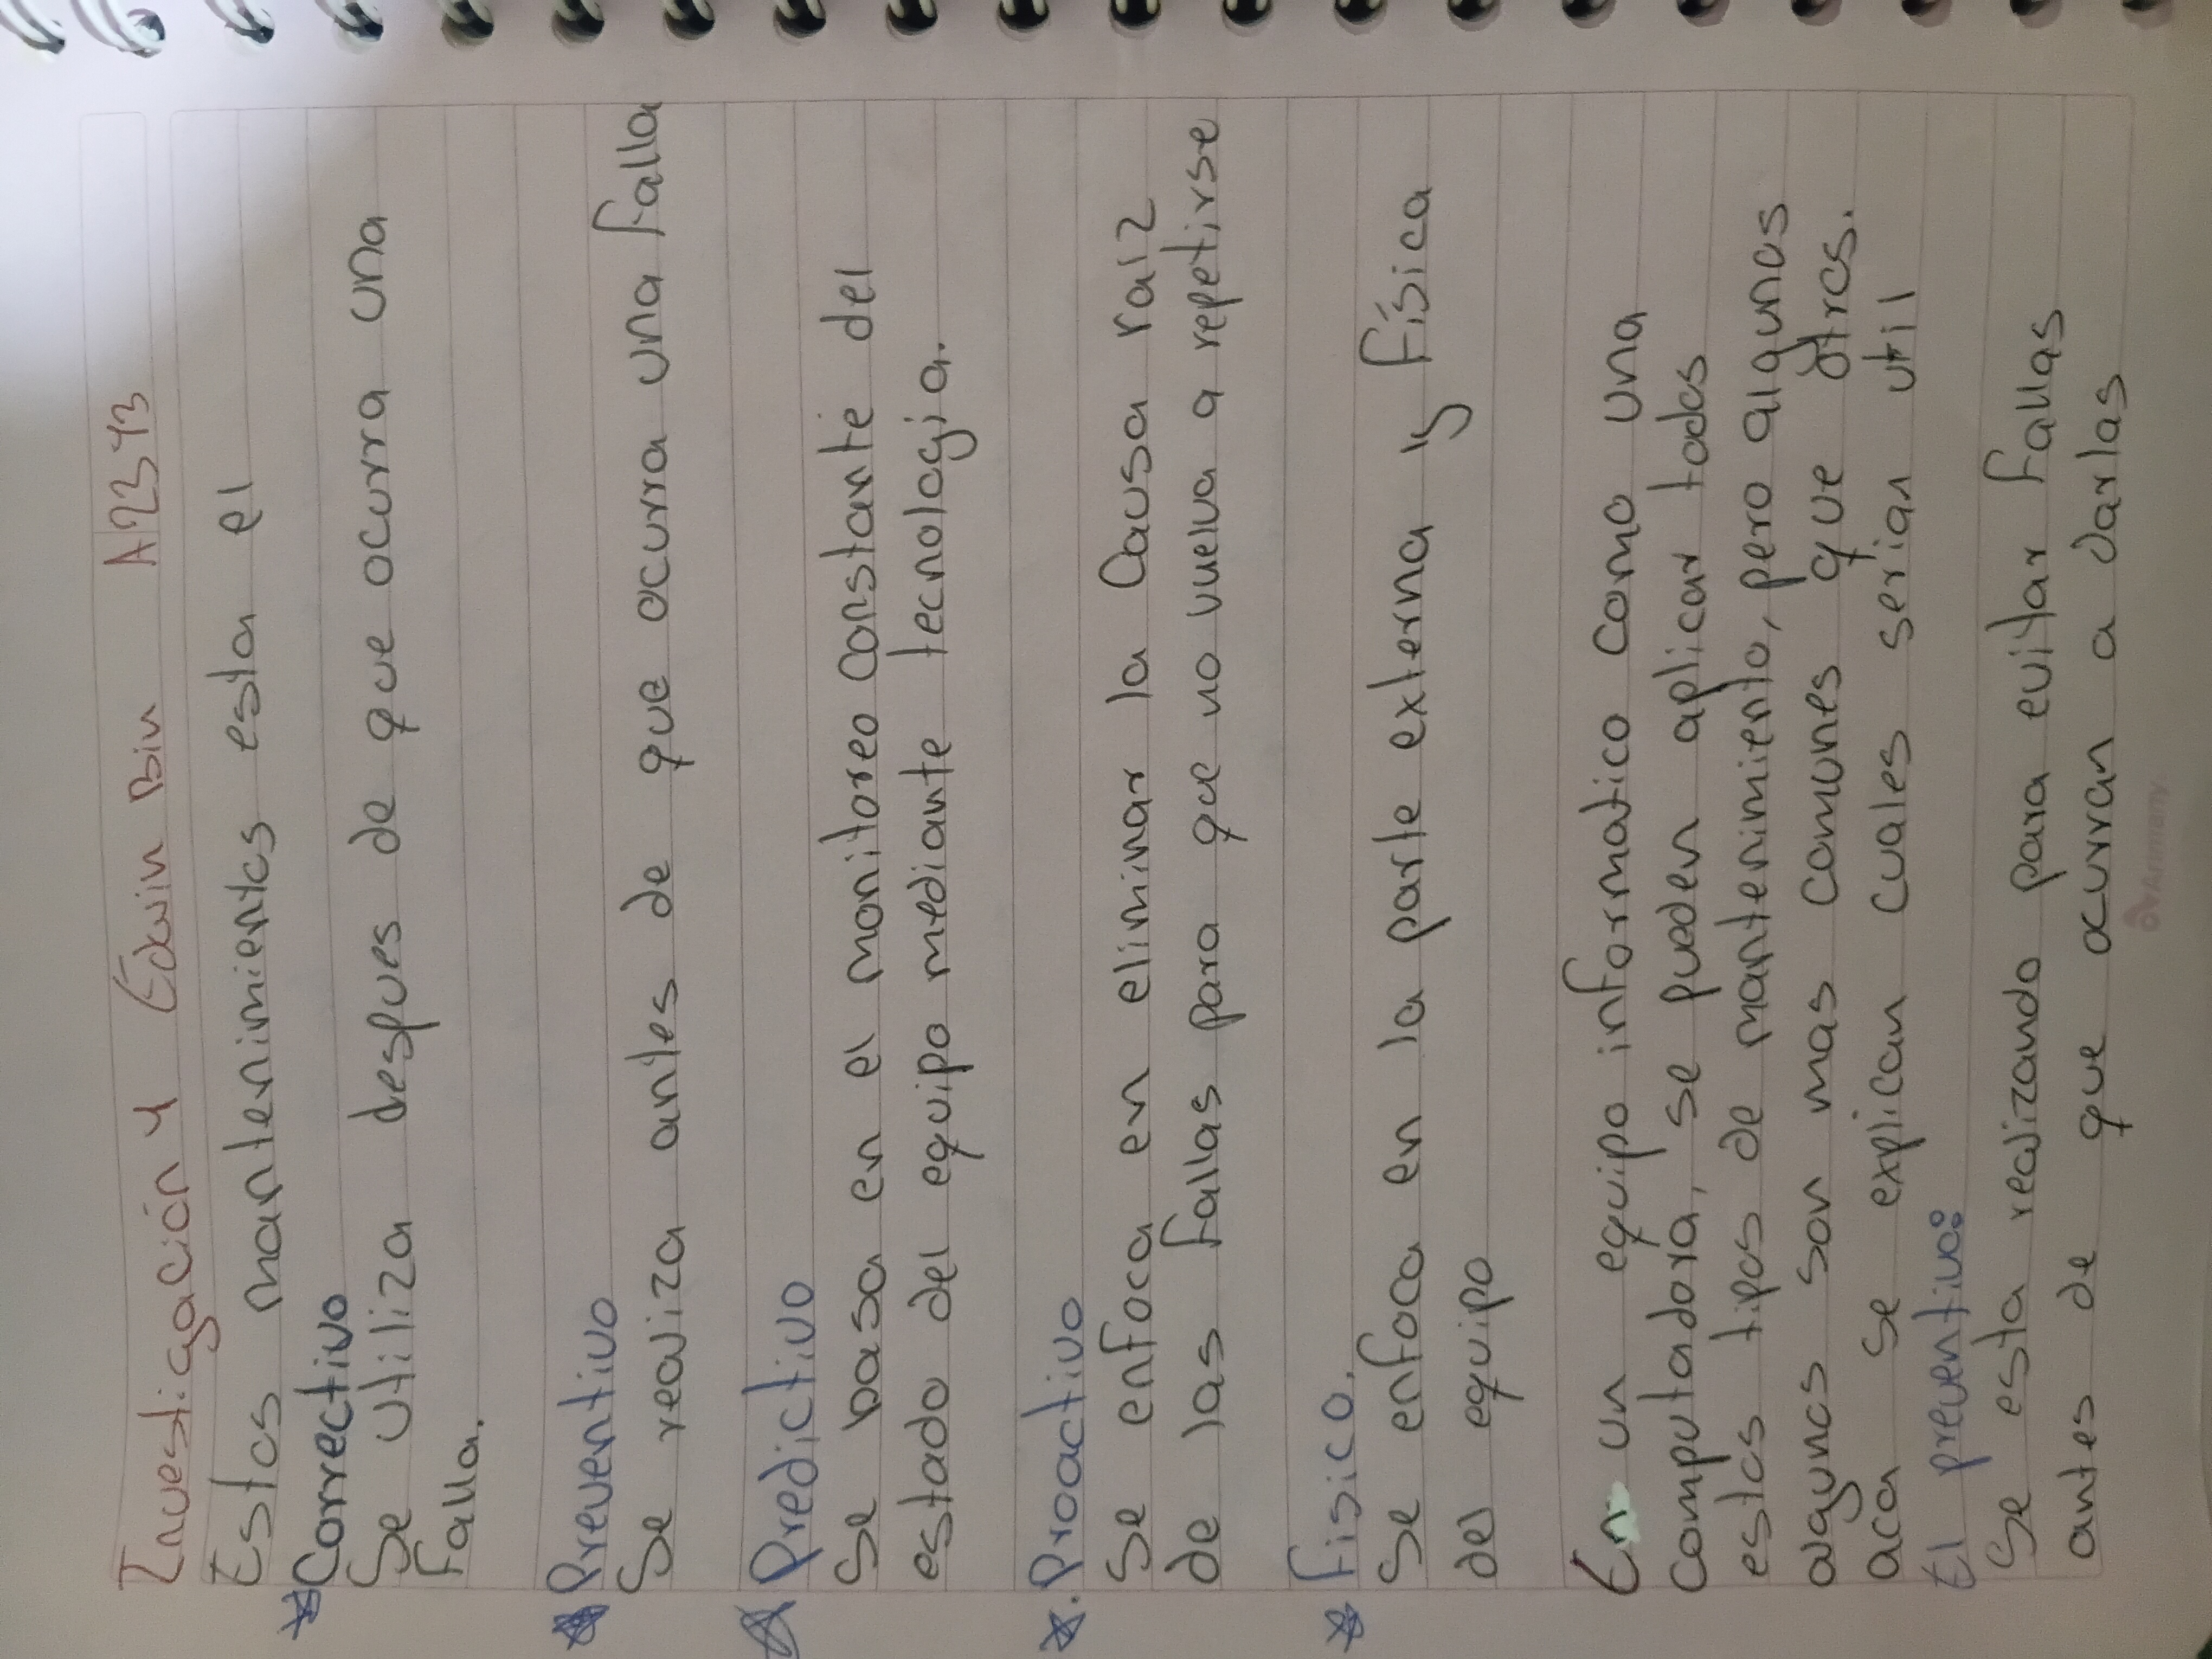 Investigación 4 Edwin Biv A12343
Estos mantenimientos esta el
Correctivo
Se utiliza despues de que ocurra una
falla.
Preventivo
Se realiza antes de que ocurra una falla
Predictivo
Se basa en el monitoreo constante del
estado del equipo mediante tecnologia.
Proactivo
Se enfoca en eliminar la Causa raiz
de las fallas para que no vuelva a repetirse
Fisico.
Se enfoca en la parte externa y física
del equipo
En un equipo informatico como una
Computadora, se pueden aplicar todos
estos tipos de mantenimiento, pero algunos
algunos son mas comunes que otros.
aca se explican cuales serian util
El preventivo:
Se esta realizando para evitar fallas
antes de que ocurran a darlas